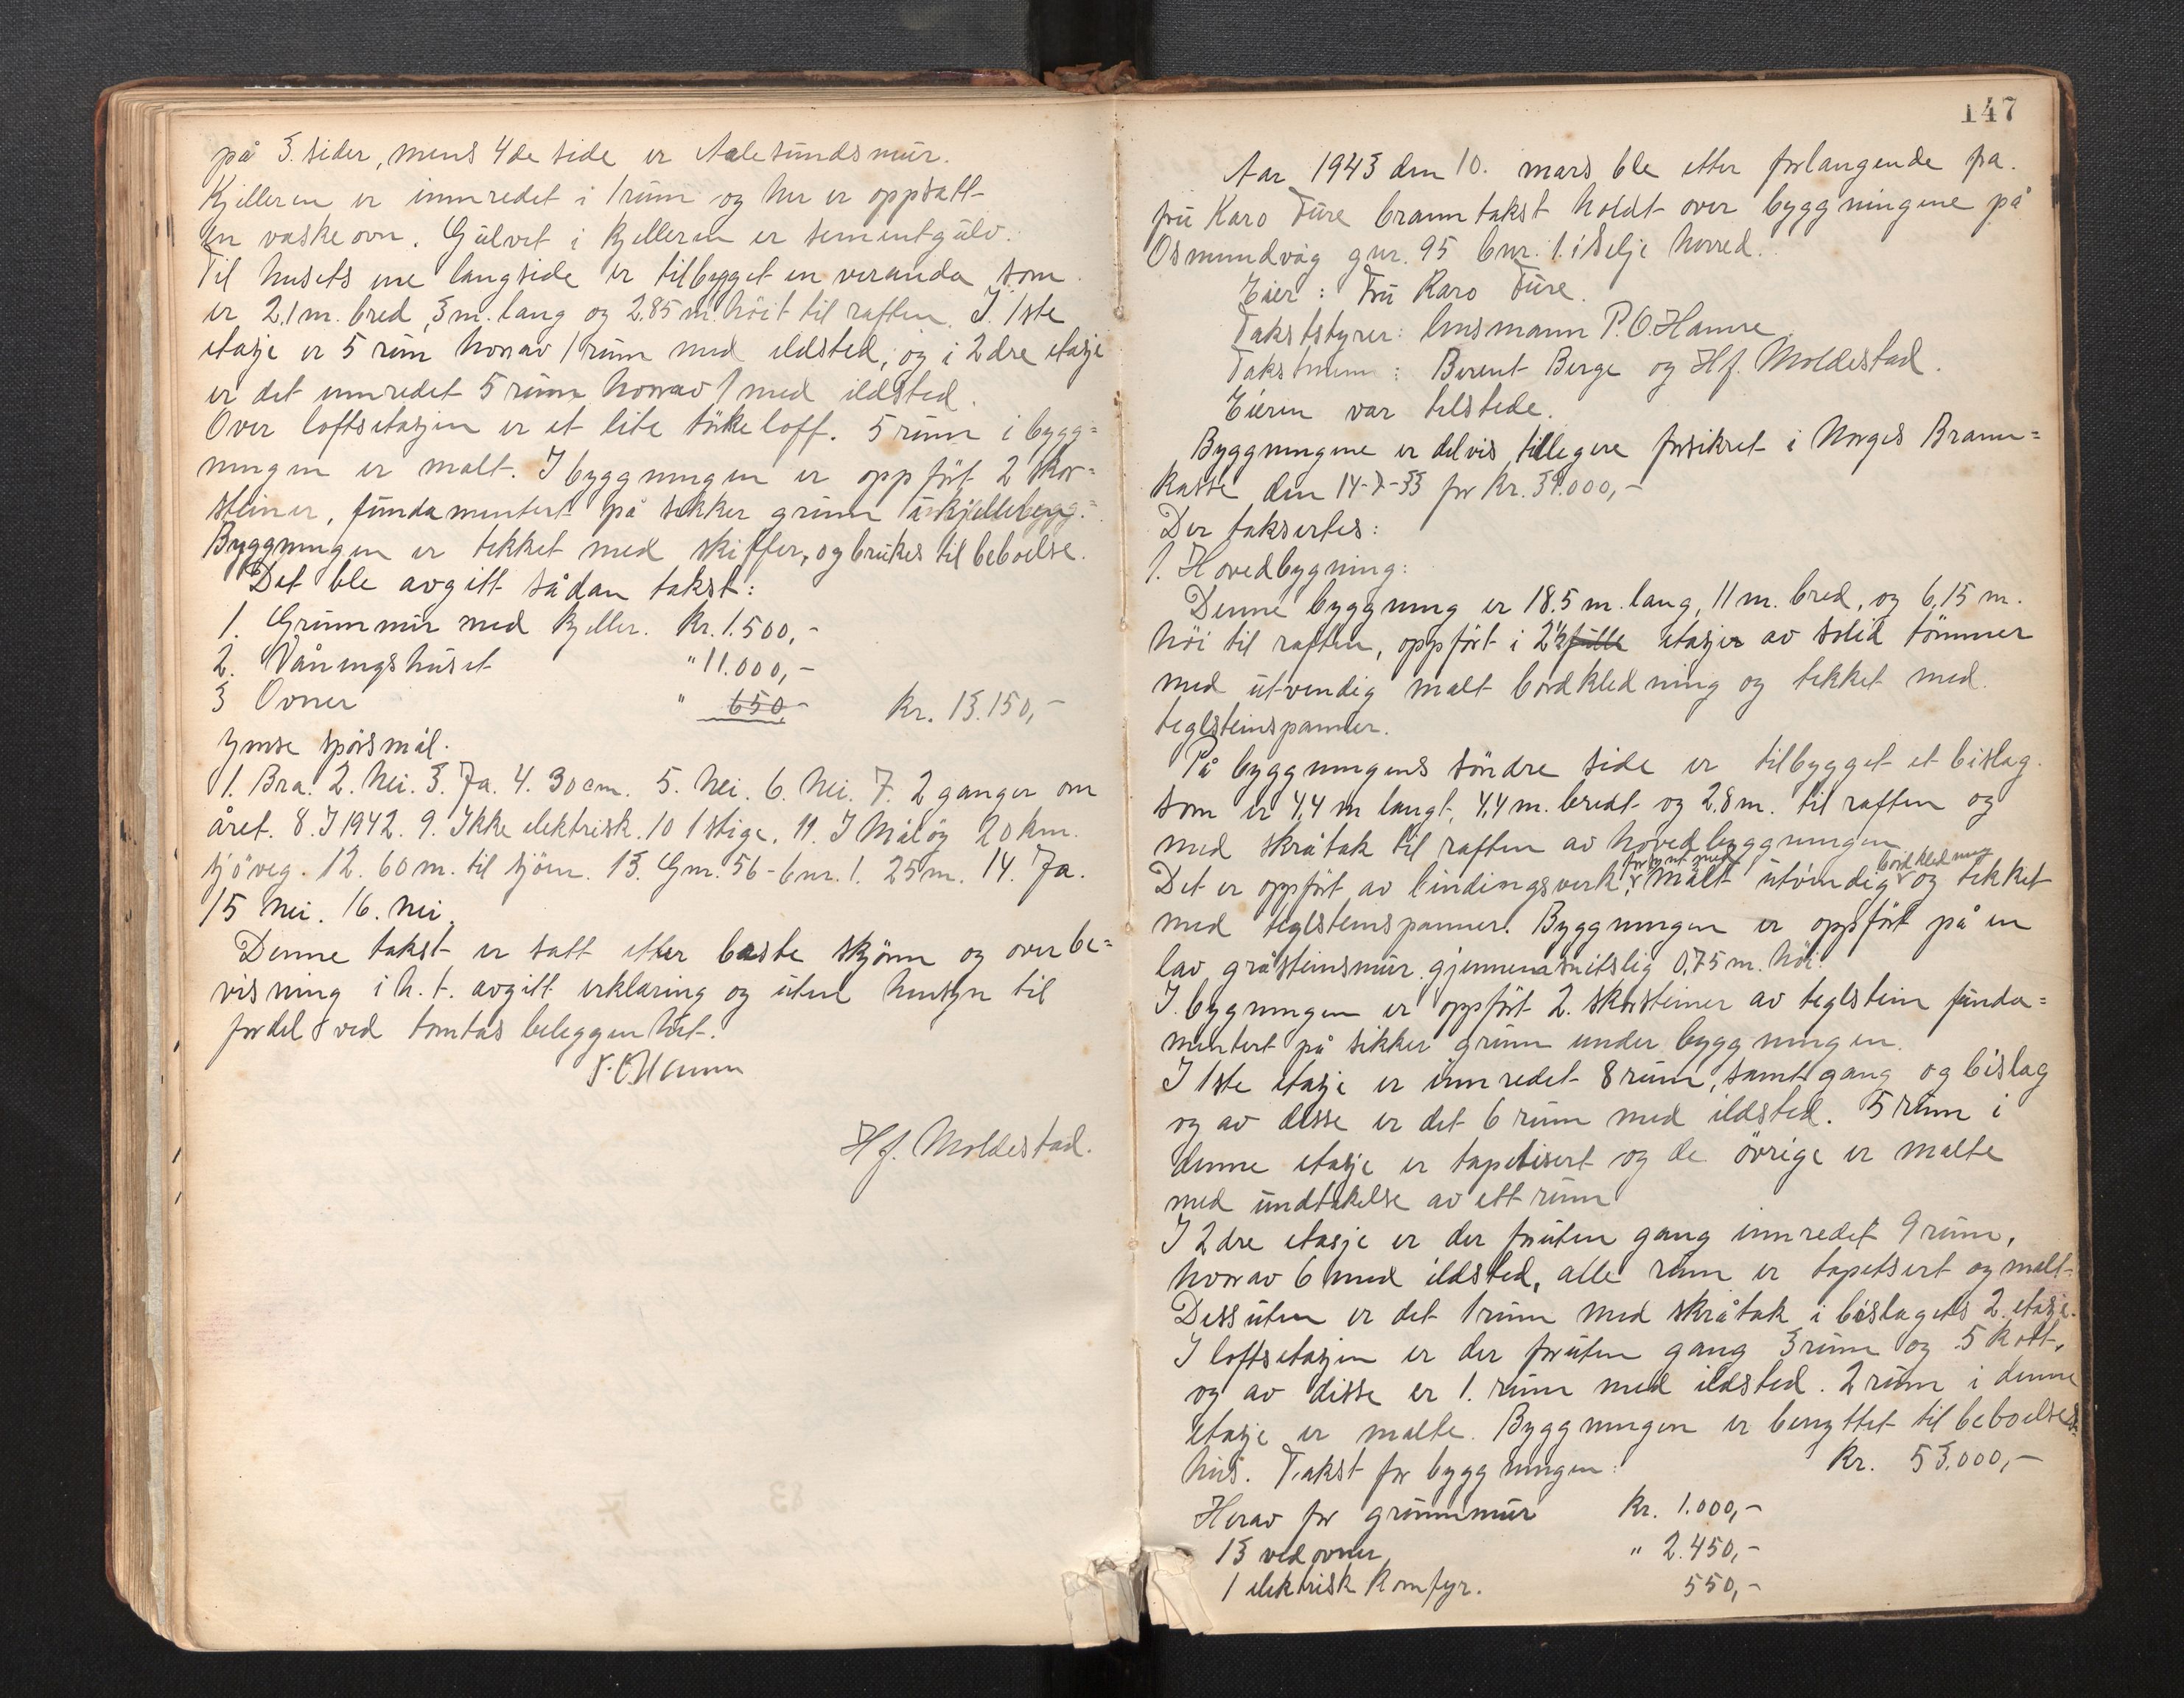 på 3. sider, mens 4de side er Aalesundsmur.
Kjelleren er innredet i 1 rum og her er oppsatt
en vaskeovn. Gulvet i kjelleren er sementgulv.
Til husets ene langside er tilbygget en veranda som
er 2,1 m. bred, 3 m. lang og 2.85 m. höit til raften. I. 1ste
etasje er 5 rum hvorav 1 rum med ildsted, og i 2dre etasje
er det innredet 5 rum hvorav 1 med ildsted.
Over loftsetasjen er et lite törkeloff. 5 rum i bygg=
ningen er malt. I byggningen er oppfört 2 skor=
steiner, fundamentert på sikker grunn
Byggningen er tekket med skiffer, og brukes til beboelse.
Det ble avgitt sådan takst:
1. Grunnmur med kjeller. Kr. 1.500,-
2. Våningshuset " 11.000,-
3 Ovner " 650,- Kr. 13.150,-
Ymse spörsmål.
1. Bra. 2. Nei. 3. Ja. 4. 30 cm. 5. Nei. 6. Nei. 7. 2 ganger om
året. 8. I 1942. 9. Ikke elektrisk. 10 1 stige. 11. I Målöy 20 km.
sjöveg. 12. 60 m. til sjöen. 13. Gnr. 56 - bnr. 1. 25 m. 14. Ja.
15 Nei. 16. Nei.
Denne takst er satt etter beste skjönn og overbe=
visning i h. t. avgitt erklæring og uten hensyn til
fordel ved tomtas beleggenhet.
P. O. Hamre
H J. Moldestad.
147
Aar 1943 den 10. mars ble etter forlangende fra
fru Karo Ture branntakst holdt over byggningene på
Osmundvåg gnr. 95 bnr. 1. i Selje herred.
Eier: Fru Karo Ture.
Takststyrer: lensmann P. O. Hamre
Takstmenn: Berent Berge og H J. Moldestad.
Eieren var tilstede.
Byggningene er delvis tillegere forsikret i Norges Brann=
kasse den 14-7-33 for Kr. 39.000,-
Der taksertes:
1. Hovedbygning:
Denne byggning er 18.5 m. lang, 11 m. bred, og 6,15 m.
höi til raften, oppfört i 2½ fulle etasjer av solid tömmer
med utvendig malt bordkledning og tekket med
teglsteinspanner.
På byggningens söndre side er tilbygget et bislag
som er 4,4 m langt, 4,4 m. bredt og 2,8 m. til raften og
med skråtak til raften av hovedbyggningen.
Det er oppfört av bindingsverk, forsynt med malt utvendig bordkledning og tekket
med teglsteinspanner. Byggningen er oppfört på en
lav gråsteinsmur gjennemsnitslig 0,75 m. höi.
I bygningen er oppfört 2. skorsteiner av teglstein funda=
mentert på sikker grunn under byggningen.
I 1ste etasje er innredet 8 rum, samt gang og bislag
og av disse er det 6 rum med ildsted. 5 rum i
denne etasje er tapetisert og de övrige er malte
med undtakelse av ett rum
I 2dre etasje er der foruten gang innredet 9 rum,
hvorav 6 med ildsted, alle rum er tapetsert og malt.
Dessuten er det 1 rum med skråtak i bislagets 2. etasje.
I loftsetasjen er der foruten gang 3 rum og 5 kott,
og av disse er 1. rum med ildsted. 2 rum i denne
etasje er malte. Byggningen er benyttet til beboelses=
hus. Takst for byggningen: Kr. 53.000,-
Herav for grunnmur Kr. 1.000,-
13 vedovner " 2.450,-
1 elektrisk Komfyr. 550,-